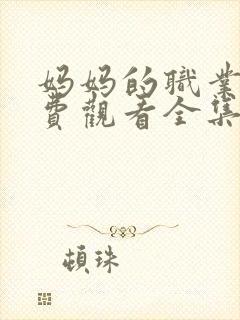 妈妈的職業
費觀看全集
頓珠